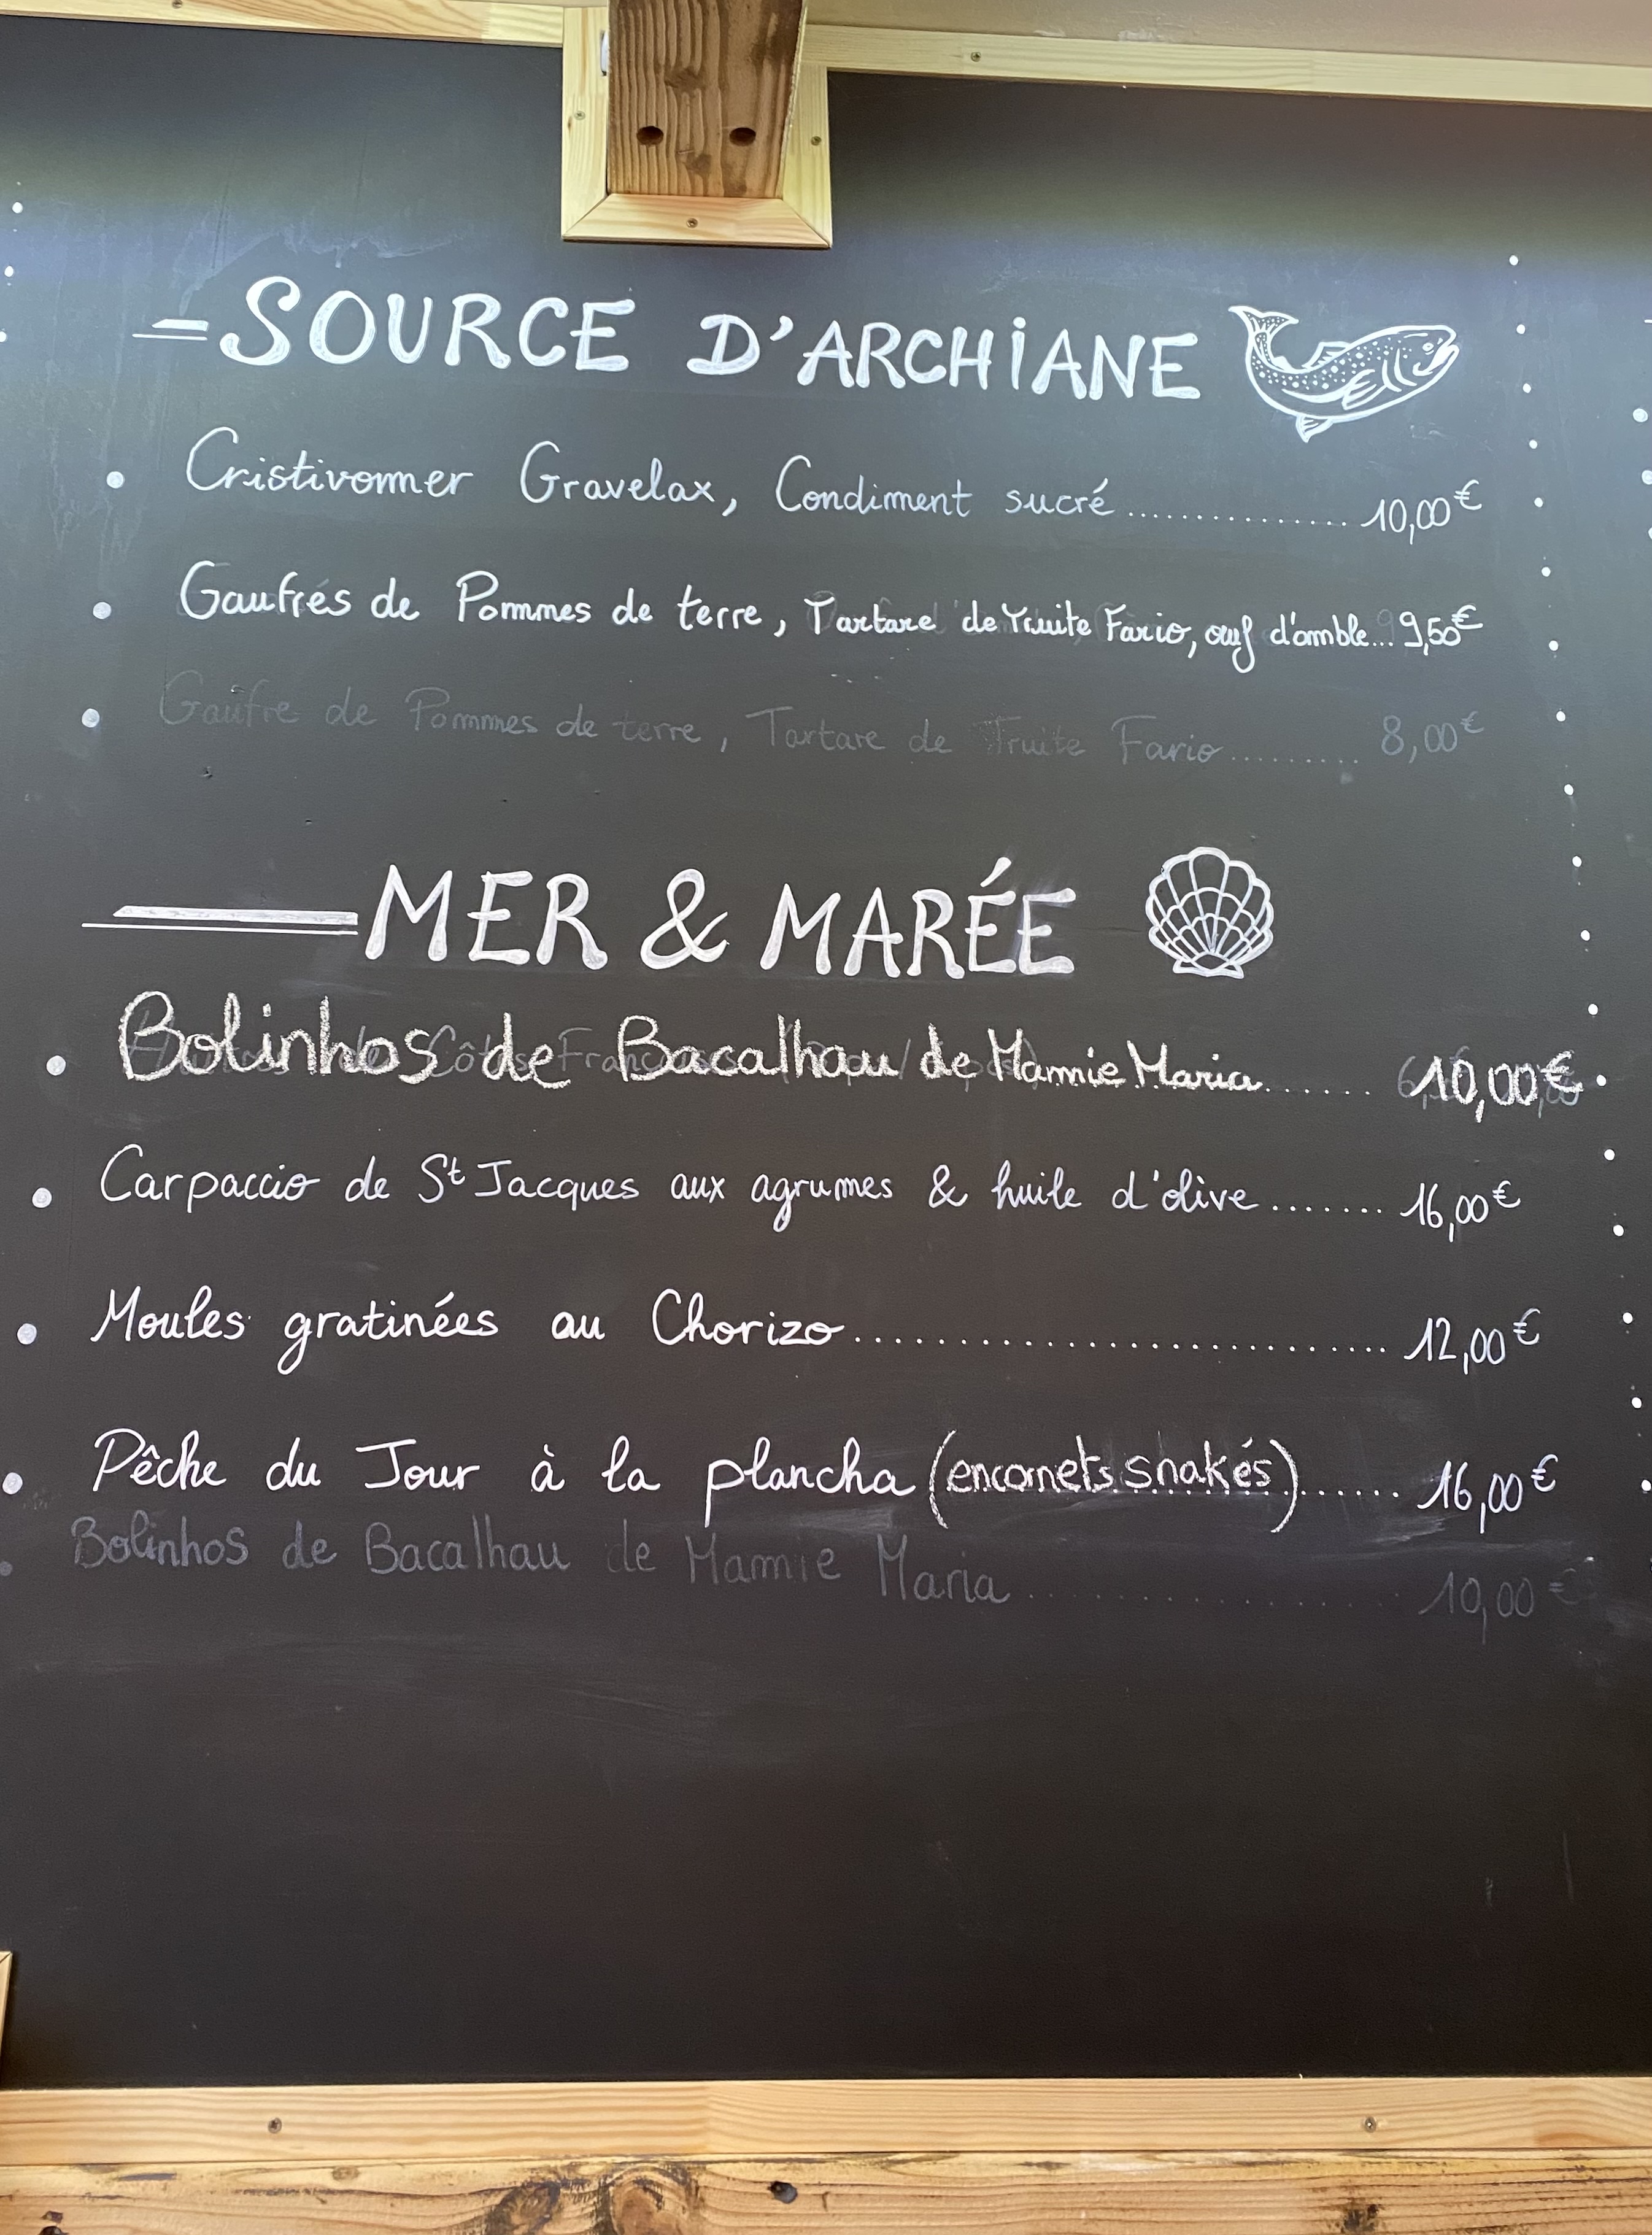 SOURCE D'ARCHIANE
Cristivomer Gravelax, Condiment sucré.............. 10,00€
Gaufrés de Pommes de terre, Tartare de Truite Fario, œuf d'omble... 9,50€
Gaufre de Pommes de terre, Tartare de Truite Fario......... 8,00€
MER & MARÉE
Bolinhos de Bacalhau de Mamie Maria....... 10,00€
Carpaccio de St Jacques aux agrumes & huile d'olive....... 16,00€
Moules gratinées au Chorizo.......................... 12,00€
Pêche du Jour à la plancha (encornets snakés)...... 16,00€
Bolinhos de Bacalhau de Mamie Maria................. 10,00€